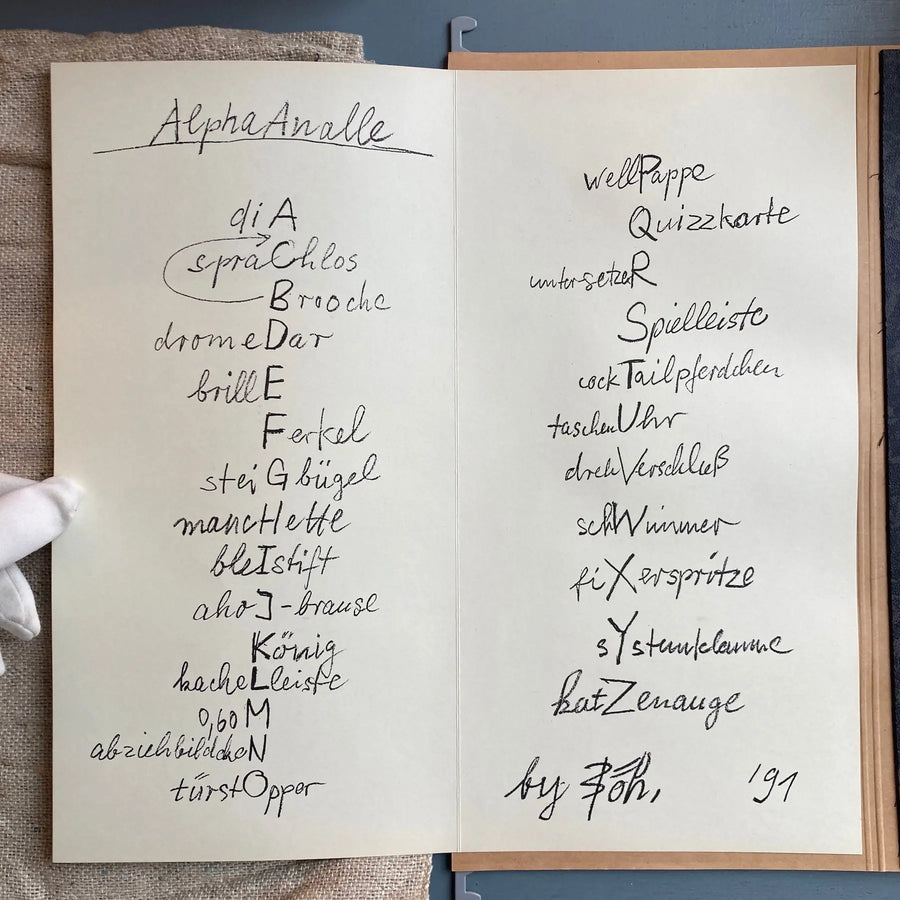 AlphaAnalle
diA
spraChlos
Brooche
dromeDar
brillE
Ferkel
steiGbügel
mancHette
bleIstift
ahoJ-brause
König
kacheLleiste
0,60 M
abziehbildcheN
türstOpper
wellPappe
Quizzkarte
untersetzeR
Spielleiste
cockTailpferdchen
taschenUhr
drehVerschluß
schWimmer
fiXerspritze
sYstemklamme
katZenauge
by '91